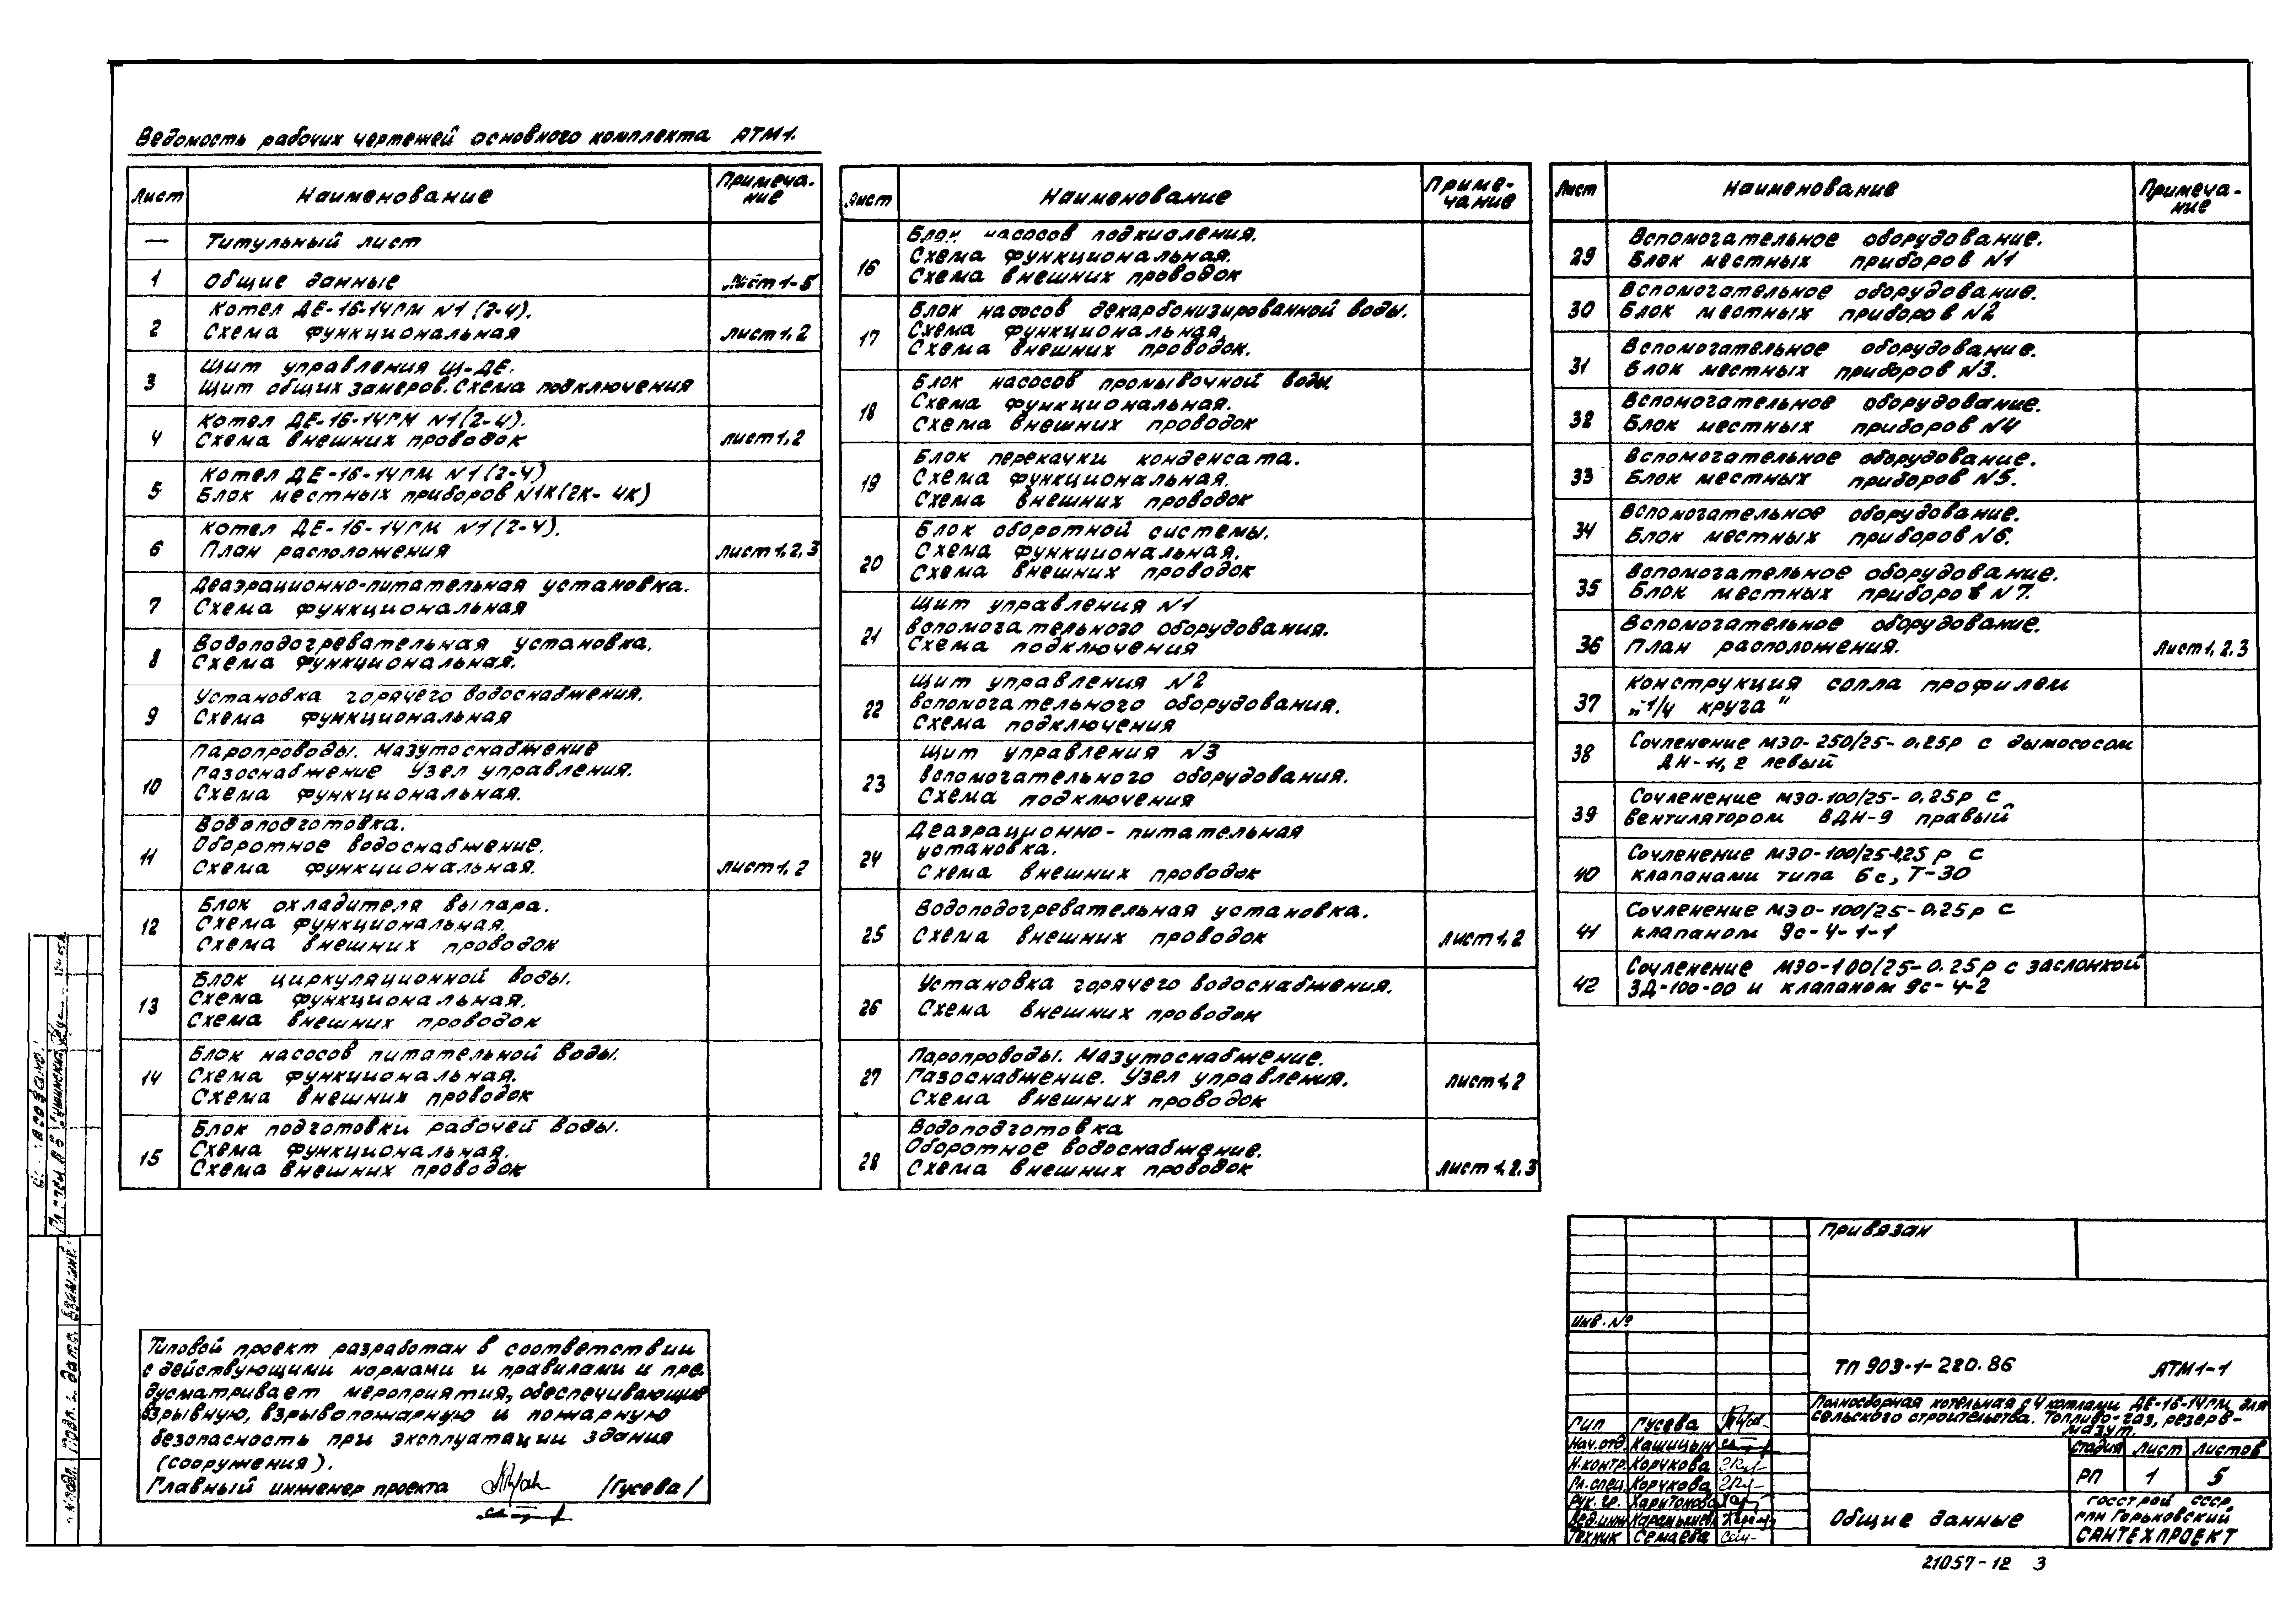 Ведомость рабочих чертежей основного комплекта АТМ1.
Лист Наименование Примеча-
ние
— Титульный лист
1 Общие данные Лист 1-5
Котел ДЕ-16-14ГМ N1 (2-4).
2 Схема функциональная лист 1,2
Щит управления Щ-ДЕ.
3 Щит общих замеров. Схема подключения
Котел ДЕ-16-14ГМ N1(2-4).
4 Схема внешних проводок лист 1,2
Котел ДЕ-16-14ГМ N1(2-4)
5 Блок местных приборов N1К(2К-4К)
Котел ДЕ-16-14ГМ N1(2-4).
6 План расположения лист 1,2,3
Деаэрационно-питательная установка.
7 Схема функциональная
Водоподогревательная установка.
8 Схема функциональная.
Установка горячего водоснабжения.
9 Схема функциональная
Паропроводы. Мазутоснабжение
Газоснабжение Узел управления.
10 Схема функциональная.
Водоподготовка.
Оборотное водоснабжение.
11 Схема функциональная. лист 1,2
Блок охладителя выпара.
12 Схема функциональная.
Схема внешних проводок
Блок циркуляционной воды.
13 Схема функциональная.
Схема внешних проводок
Блок насосов питательной воды.
14 Схема функциональная.
Схема внешних проводок
Блок подготовки рабочей воды.
15 Схема функциональная.
Схема внешних проводок
Лист Наименование Приме-
чание
Блок насосов подкисления.
16 Схема функциональная.
Схема внешних проводок
Блок насосов декарбонизированной воды.
17 Схема функциональная.
Схема внешних проводок.
Блок насосов промывочной воды
18 Схема функциональная.
Схема внешних проводок
Блок перекачки конденсата.
19 Схема функциональная.
Схема внешних проводок
Блок оборотной системы.
20 Схема функциональная.
Схема внешних проводок
Щит управления N1
21 вспомогательного оборудования.
Схема подключения
Щит управления N2
22 вспомогательного оборудования.
Схема подключения
Щит управления N3
23 вспомогательного оборудования.
Схема подключения
Деаэрационно-питательная
24 установка.
Схема внешних проводок
Водоподогревательная установка.
25 Схема внешних проводок Лист 1,2
Установка горячего водоснабжения.
26 Схема внешних проводок
Паропроводы. Мазутоснабжение.
27 Газоснабжение. Узел управления. Лист 1,2
Схема внешних проводок
Водоподготовка
Оборотное водоснабжение.
28 Схема внешних проводок Лист 1,2,3
Лист Наименование Примеча-
ние
Вспомогательное оборудование.
29 Блок местных приборов N1
Вспомогательное оборудование.
30 Блок местных приборов N2
Вспомогательное оборудование.
31 Блок местных приборов N3.
Вспомогательное оборудование.
32 Блок местных приборов N4
Вспомогательное оборудование.
33 Блок местных приборов N5.
Вспомогательное оборудование.
34 Блок местных приборов N6.
Вспомогательное оборудование.
35 Блок местных приборов N7.
Вспомогательное оборудование.
36 План расположения. Лист 1,2,3
Конструкция сопла профилем
37 „1/4 круга"
Сочленение МЭО-250/25-0,25Р с дымососом
38 ДН-11,2 левый
Сочленение МЭО-100/25-0,25Р с
39 вентилятором ВДН-9 правый
Сочленение МЭО-100/25-0,25 Р с
40 клапанами типа 6с, Т-30
Сочленение МЭО-100/25-0.25Р с
41 клапаном 9с-4-1-1
Сочленение МЭО-100/25-0.25Р с заслонкой
42 ЗД-100-00 и клапаном 9с-4-2
Типовой проект разработан в соответствии
с действующими нормами и правилами и пре-
дусматривает мероприятия, обеспечивающие
взрывную, взрывопожарную и пожарную
безопасность при эксплуатации здания
(сооружения).
Главный инженер проекта /Гусева/
Привязан
Инв. №
ТП 903-1-220.86 АТМ1-1
Полносборная котельная с 4 котлами ДЕ-16-14ГМ для
сельского строительства. Топливо-газ, резерв-
мазут.
Гип Гусева
Нач.отд. Кашицын
Н.контр. Корчкова
Гл.спец. Корчкова
Рук. гр. Харитонова
Вед.инж.
Техник Семаева
Стадия Лист Листов
РП 1 5
Общие данные
Госстрой СССР,
ГПИ Горьковский
САНТЕХПРОЕКТ
21057-12 3
Подп. и дата